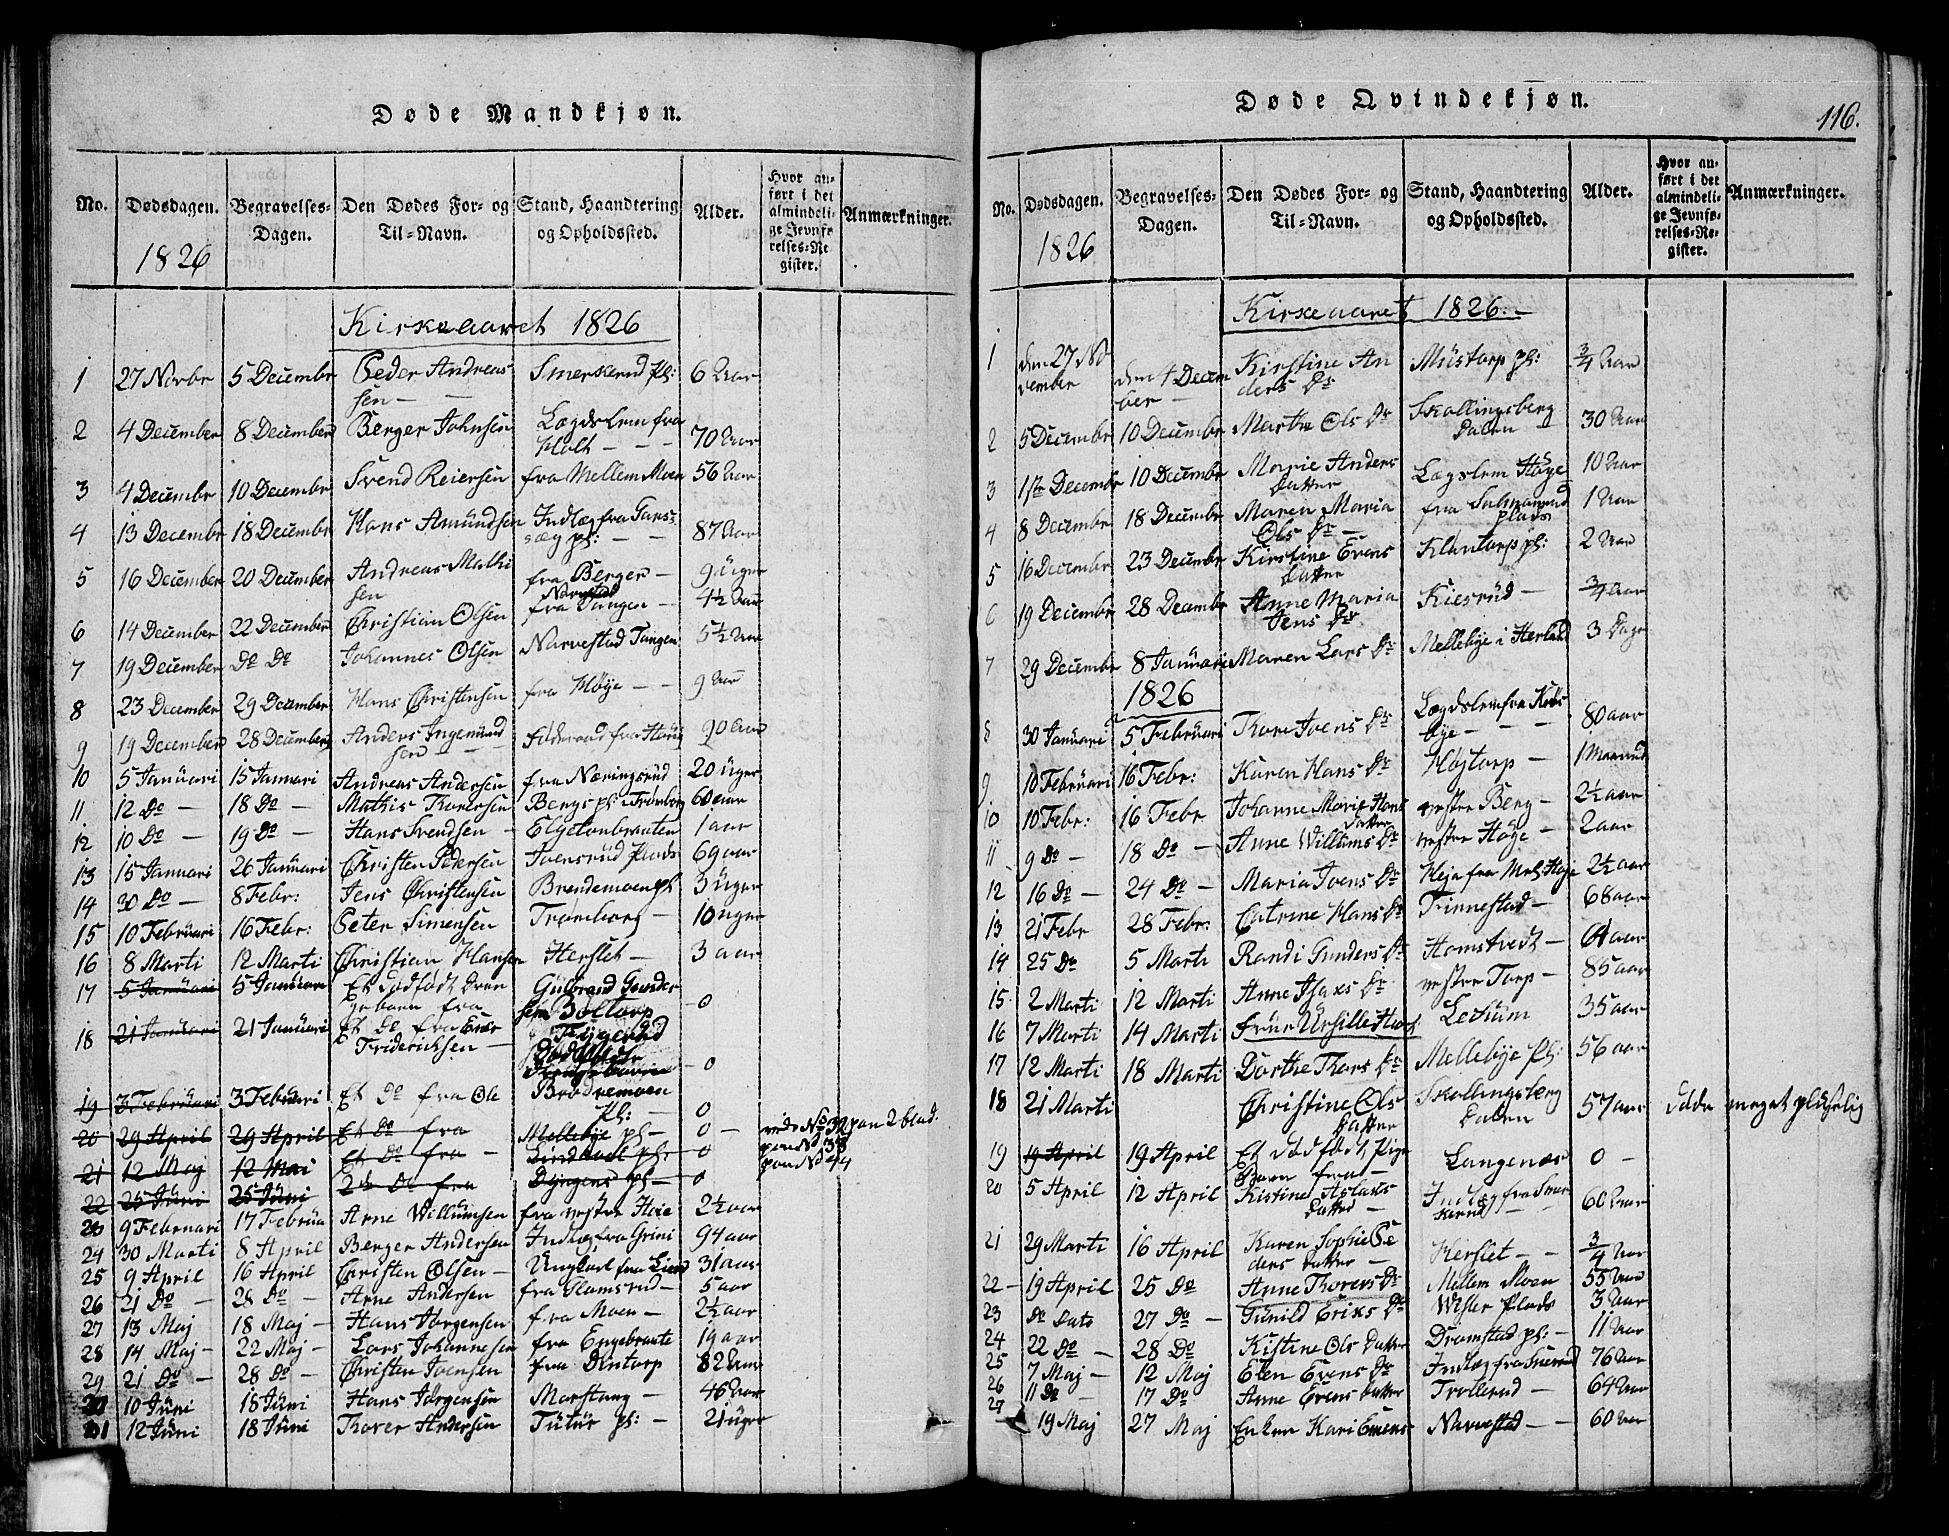 Døde Mandkjøn.
No. Dødsdagen. 1826 Begravelses-Dagen. Den Dødes For- og Til-Navn. Stand, Haandtering og Opholdssted. Alder. Hvor anført i det almindelige Jevnførelses-Register. Anmærkninger.
Kirkeaaret 1826
1 27 Novbr 5 Decembr Peder Andreas Smerkerud Pl: 6 Aar
sen
2 4 December 8 December Berger Johnsen Lægdslem fra Holt 70 Aar
3 4 Decembr 10 Decembr Svend Reiersen fra Mellem Moen 56 Aar
4 13 Decembr 18 Decembr Hans Amundsen Indlæg fra
pl: 87 Aar
5 16 December 20 December Andreas Mathi fra Berger 9 Uger
sen
6 14 December 22 December Christian Olsen fra Narvestad Tangen 4½ Aar
7 19 December Do Do Johannes Olsen Narvestad Tangen 5½ Aar
8 23 December 29 December Hans Christensen fra Høye 9 Aar
9 19 December 28 December Anders Ingemund fra 90 Aar
sen
10 5 Januari 15 Januari Andreas Andersen fra Næringsrud 20 Uger
11 12 Do 18 Do Mathis Thoersen Bergs pl: Trømborg 60 aar
12 10 Do 19 Do Hans Svendsen Elgetonbraaten 1 aar
13 15 Januari 26 Januari Christen Pedersen Joensrud Plads 69 aar
14 30 Do 8 Febr: Jens Christensen Brendemoen pl 3 Uger
15 10 Februari 16 Febr: Peter Simensen Trømborg 10 uger
16 8 Marti 12 Marti Christian Hansen Herslet 3 aar
17 5 Januari 5 Januari Et dødfødt Dren Gulbrand Gunder
gebarn fra sen Boltorp 0
18 21 Januari 21 Januari Et Do fra Ener
Friderichsen 0
19 3 Februari 3 Februari Et Do fra Ole Brødremoen
Pl: 0
20 29 April 29 April Et Do fra Mellebye pl 0
21 12 Maj 12 Mai Et Do fra pl: 0
22 25 Juni 25 Juni 2de Do fra pl 0
23 9 Februari 17 Februa Arne Willumsen fra vestre Høie 2½ aar
24 30 Marti 8 April Berger Andersen Indlæg fra Grini 94 aar
25 9 April 16 April Christen Olsen Ungkarl fra 31 aar
26 21 Do 28 Do Arne Andersen fra Glamsrud 5 aar
27 13 Maj 18 Maj Hans Jørgensen fra Moen 2½ aar
28 14 Maj 22 Maj Lars Johannesen fra Engebraate 19 aar
29 21 Do 28 Do Christen Joensen fra Dintorp 82 Aar
30 10 Juni 18 Juni Hans Jørgensen Morstang 46 Aar
31 12 Juni 18 Juni Thorer Andersen Tutur pl: 21 uger
Døde Qvindekjøn.
116.
No. Dødsdagen. 1826 Begravelses-Dagen. Den Dødes For- og Til-Navn. Stand, Haandtering og Opholdssted. Alder. Hvor anført i det almindelige Jevnførelses-Register. Anmærkninger.
Kirkeaaret 1826.
1 den 27 No den 4 Decem Kirstine An Mustorp pl: ¾ Aar
vember ber ders Dr
2 5 Decembr 10 Decembr Marthe Ols Dr Skallingsberg
Dalen 30 Aar
3 1ste Decembr 10 Decembr Marie Anders Lægslem Høye 10 Aar
Datter
4 8 Decembr 18 Decembr Maren Maria fra 1 Aar
Ols Dr Plads
5 16 Decembr 23 Decembr Kirstine Evens Klantorp pl: 2 Aar
Datter
6 19 Decembr 28 Decembr Anne Maria Kiesrud ¾ Aar
Jens Dr
7 29 Decembr 8 Januari Maren Lars Dr Mellebye i Herland 3 Dage
1826
8 30 Januari 5 Februari Thore Joens Dr Lægdslem fra
bye 80 aar
9 10 Februari 16 Febr: Karen Hans Dr Højtorp 1 Maaned
10 10 Febr: 16 Febr Johanne Marie Hans vestre Berg 2½ aar
Datter
11 9 Do 18 Do Anne Willums Dr vestre Høye 2 aar
12 16 Do 24 Do Maria Joens Dr fra 2½ aar
13 21 Febr 28 Febr: Catrine Hans Dr Finnestad 68 aar
14 25 Do 5 Marti Randi Gunders Dr Homstvedt 64 aar
15 2 Marti 12 Marti Anne Isaxs Dr vestre Torp 85 aar
16 7 Marti 14 Marti Frue Ursille Lecium 35 aar
17 12 Marti 18 Marti Dorthe Thors Dr Mellebye Pl: 56 aar
18 21 Marti Christine Ols Skallingsberg 57 aar døde meget pludselig
Datter Dalen
19 19 April 19 April Et dødfødt Pige Langenæs 0
Barn fra
20 5 April 12 April Kistine Aslaks Indlæg fra Smer 60 aar
Datter kerud
21 29 Marti 16 April Karen Sophie Pe Herslet ¾ Aar
ders Datter
22 19 April 25 Do Anne Thorers Dr Mellem Moen 55 Aar
23 Do Dato 27 Do Gunild Eriks Dr Plads 3 Aar
24 22 Do 28 Do Kistine Ols Datter Dramstad pl: 11 Aar
25 7 Maj 12 Maj Elen Evens Dr Indlæg fra 76 Aar
26 11 Do 17 Do Anne Evens Datter Trollerud 64 Aar
27 19 Maj 27 Maj Enken Kari Evens Narvestad 60 Aar